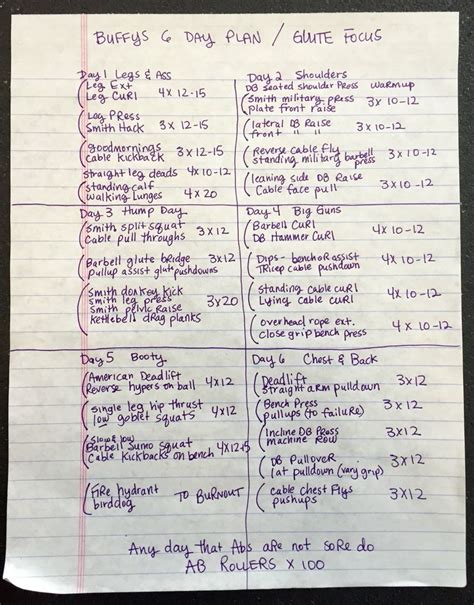 BUFFYS 6 DAY PLAN / GLUTE FOCUS
Day 1 Legs & Ass
Leg Ext
Leg Curl 4x 12-15
Leg Press
Smith Hack 3x 12-15
Goodmornings
cable kickback 3x12-15
straight leg deads 4x10-12
standing calf
walking lunges 4x20
Day 2 Shoulders
DB seated shoulder Press Warmup
Smith military press
Plate front raise 3x 10-12
lateral DB Raise
front " " 3x10-12
reverse cable fly
standing military barbell press 3x10-12
leaning side DB Raise
Cable face pull 3x10-12
Day 3 Hump Day
Smith split squat
Cable pull throughs 3x12
Barbell glute bridge
pullup assist glute pushdowns 3x12
Smith donkey kick
smith leg press
Smith pelvic raise
Kettlebell drag planks 3x20
Day 4 Big Guns
Barbell Curl
DB Hammer Curl 4x10-12
Dips - bench or assist
Tricep cable pushdown 4x10-12
standing cable curl
Lying cable curl 4x10-12
overhead rope ext.
close grip bench press 4 x 10-12
Day 5 Booty
American Deadlift
Reverse hypers on ball 4x12
single leg hip thrust
low goblet squats 4x12
slow & low
Barbell Sumo Squat
Cable Kickbacks on bench 4x12-15
Fire hydrant
birddog TO BURNOUT
Day 6 Chest & Back
Deadlift
straight arm pulldown 3x12
Bench Press
pullups (to failure) 3x12
Incline DB Press
machine row 3x12
DB Pullover
lat pulldown (vary grip) 3x12
cable chest flys
pushups 3x12
Any day that Abs are not sore do
AB ROLLERS X 100